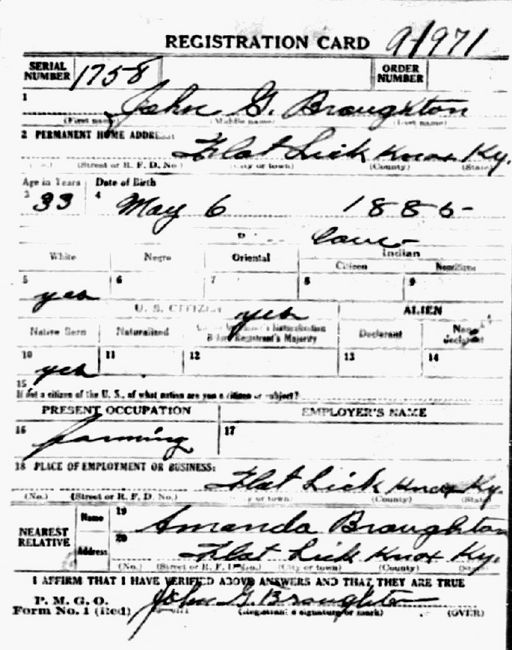 REGISTRATION CARD A1971
SERIAL NUMBER 1758 ORDER NUMBER
1 John G. Broughton
(First name) (Middle name) (Last name)
2 PERMANENT HOME ADDRESS
Flat Lick Knox Ky.
(No.) (Street or R. F. D. No.) (City or town) (County) (State)
Age in Years Date of Birth
3 33 4 May 6 1885
White Negro Oriental Indian
Citizen Noncitizen
5 yes 6 7 8 9
U. S. CITIZEN yes ALIEN
Native Born Naturalized Citizen by Father's Naturalization Before Registrant's Majority Declarant Non-declarant
10 yes 11 12 13 14
15
If not a citizen of the U. S., of what nation are you a citizen or subject?
PRESENT OCCUPATION EMPLOYER'S NAME
16 farming 17
18 PLACE OF EMPLOYMENT OR BUSINESS:
Flat Lick Knox Ky.
(No.) (Street or R. F. D. No.) (City or town) (County) (State)
NEAREST RELATIVE Name 19 Amanda Broughton
Address 20 Flat Lick Knox Ky.
(No.) (Street or R. F. D. No.) (City or town) (County) (State)
I AFFIRM THAT I HAVE VERIFIED ABOVE ANSWERS AND THAT THEY ARE TRUE
P. M. G. O.
Form No. 1 (Red) John G. Broughton
(Registrant's signature or mark) (OVER)